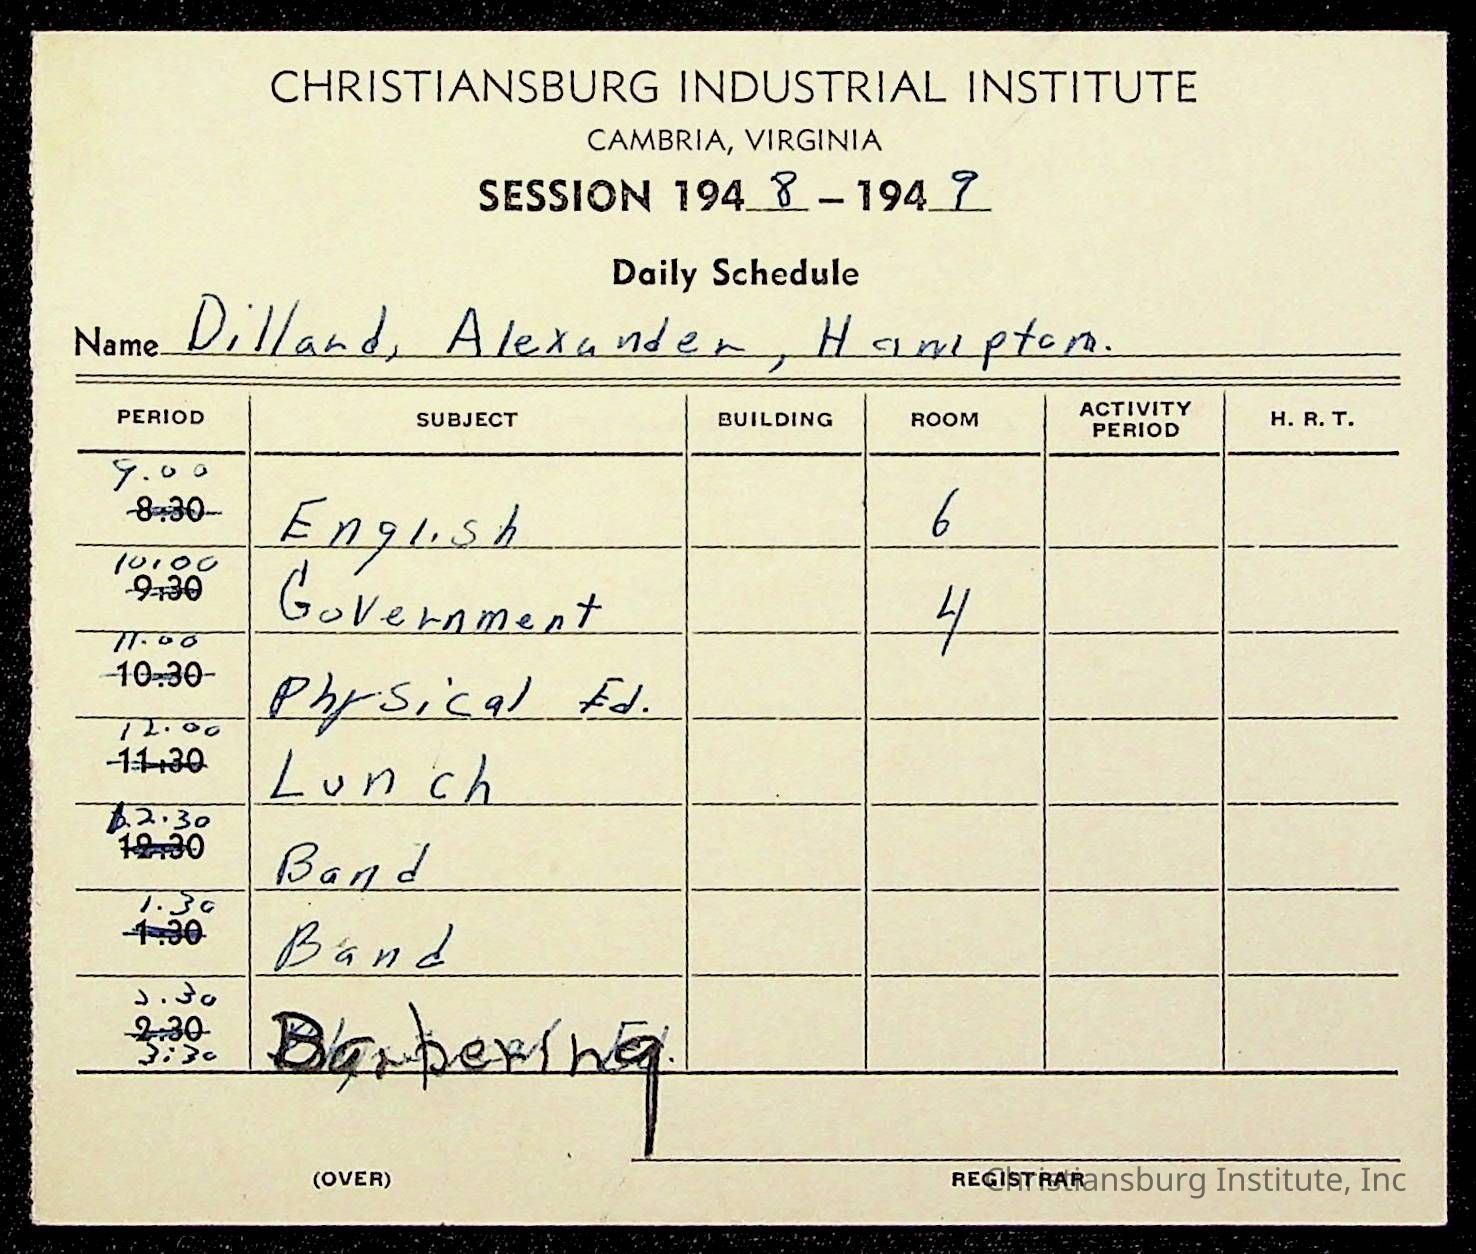 CHRISTIANSBURG INDUSTRIAL INSTITUTE
CAMBRIA, VIRGINIA
SESSION 194 8 – 194 9
Daily Schedule
Name Dillard, Alexander, Hampton.
PERIOD SUBJECT BUILDING ROOM ACTIVITY PERIOD H. R. T.
9.00
8:30 English 6
10:00
9:30 Government 4
11.00
10:30 Physical Ed.
12.00
11:30 Lunch
12.30
12:30 Band
1.30
1:30 Band
2.30
2:30 Barbering
3:30
(OVER) REGISTRAR
Christiansburg Institute, Inc